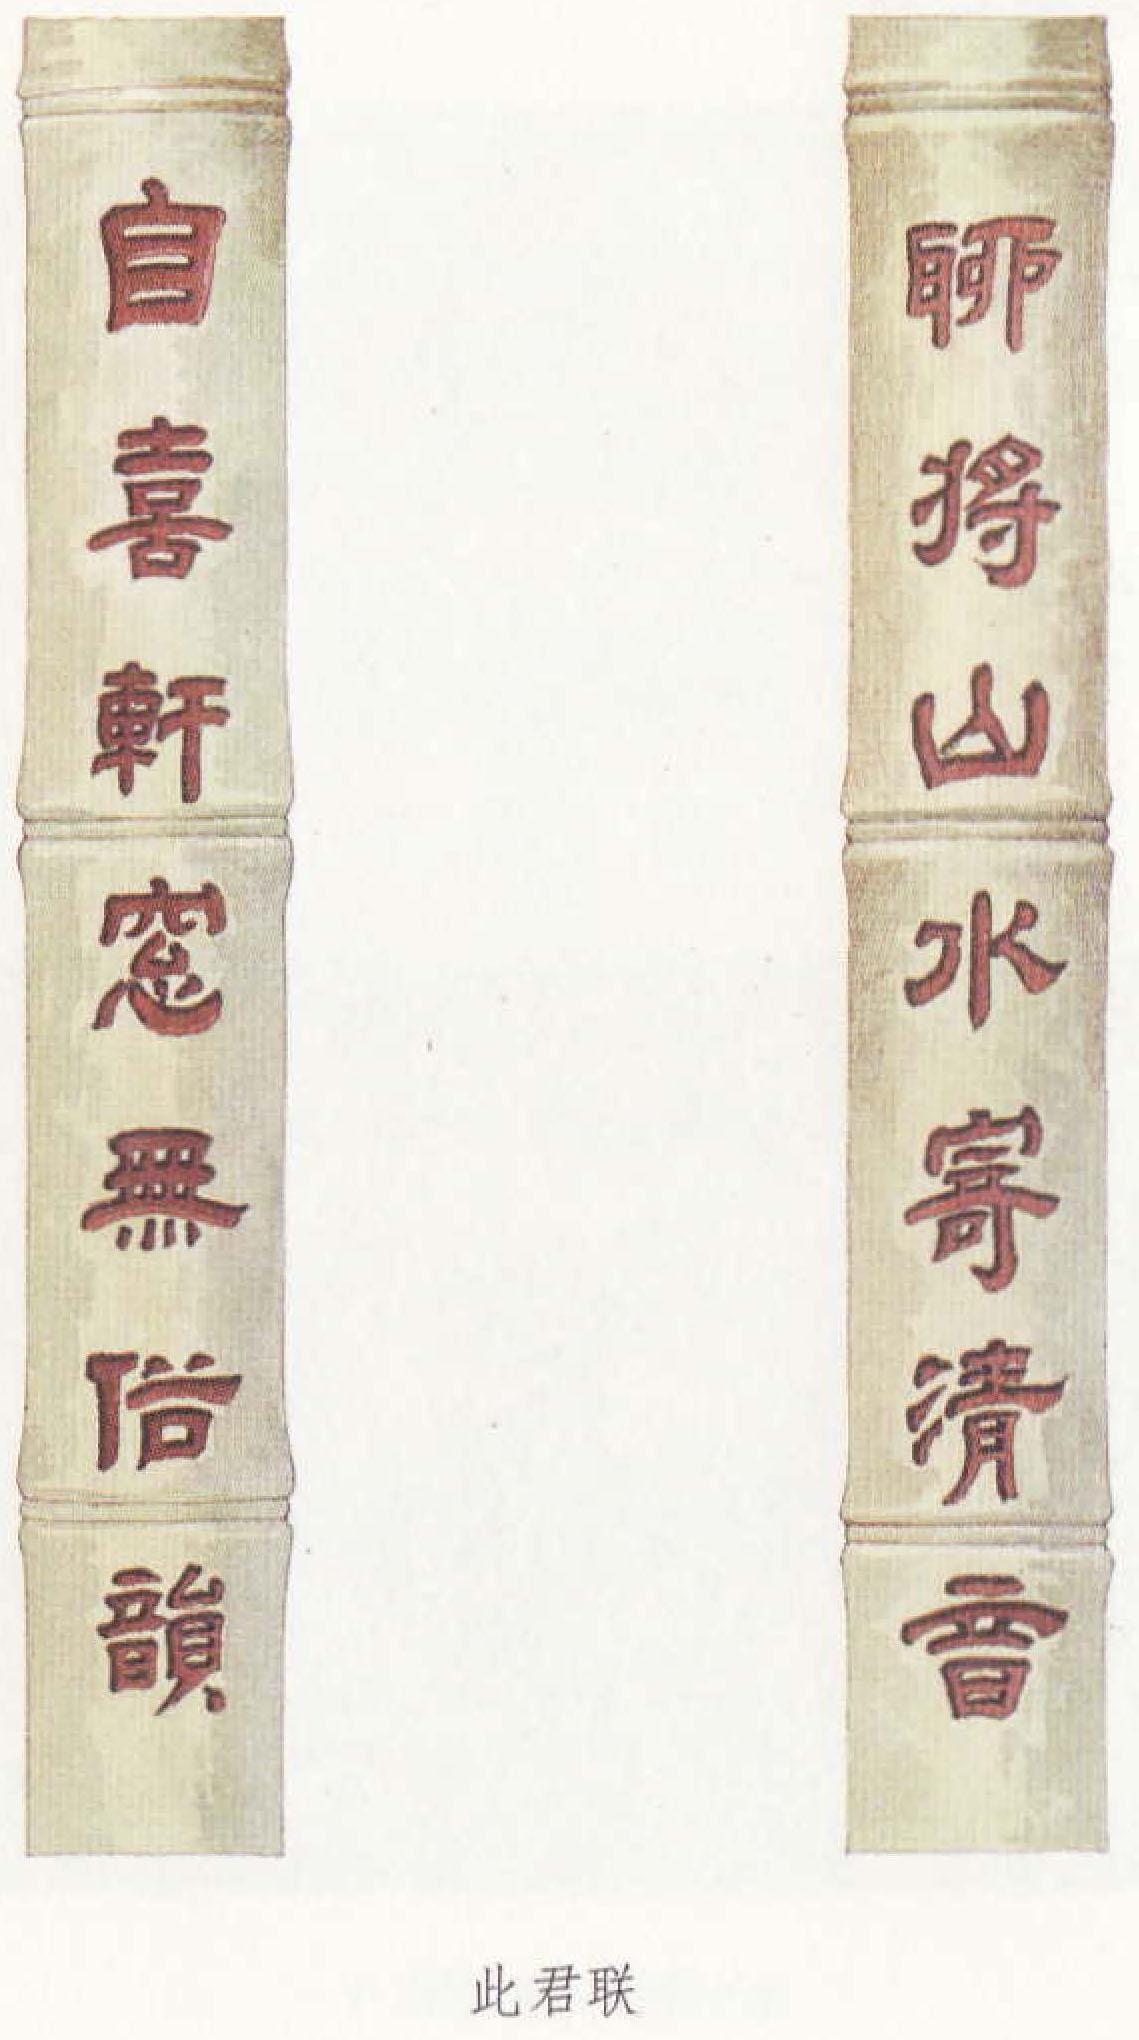 聊將山水寄清音
自喜軒窓無俗韻
此君联